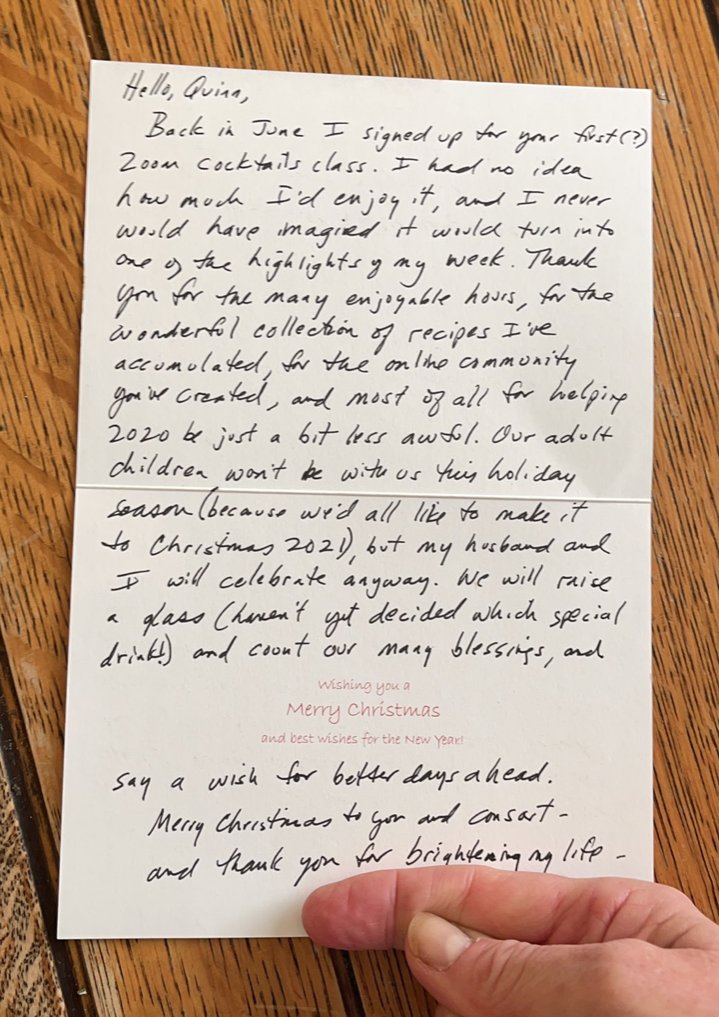 Hello, Quinn,
Back in June I signed up for your first(?)
Zoom cocktails class. I had no idea
how much I'd enjoy it, and I never
would have imagied it would turn into
one of the highlights of my week. Thank
you for the many enjoyable hours, for the
wonderful collection of recipes I've
accumulated, for the online community
you've created, and most of all for helping
2020 be just a bit less awful. Our adult
children won't be with us this holiday
season (because we'd all like to make it
to Christmas 2021), but my husband and
I will celebrate anyway. We will raise
a glass (haven't yet decided which special
drink!) and count our many blessings, and
Wishing you a
Merry Christmas
and best wishes for the New Year!
say a wish for better days ahead.
Merry Christmas to you and consort -
and thank you for brightening my life -